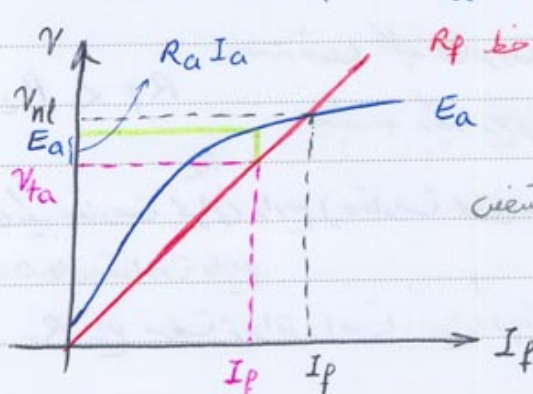 V
Ra Ia
خط Rf
Vnl
Ea
Ea
Vta
If
If
If